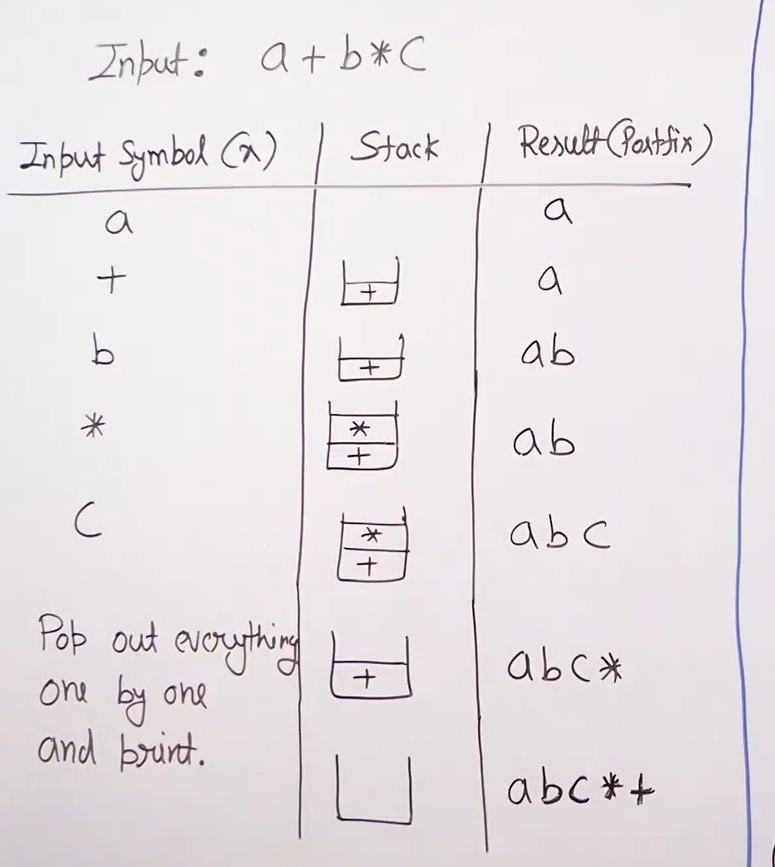 Input: a + b * C
Input Symbol (x) Stack Result (Postfix)
a a
+ + a
b + ab
* * ab
+
C * abc
+
Pop out everything
one by one + abc*
and print.
abc*+